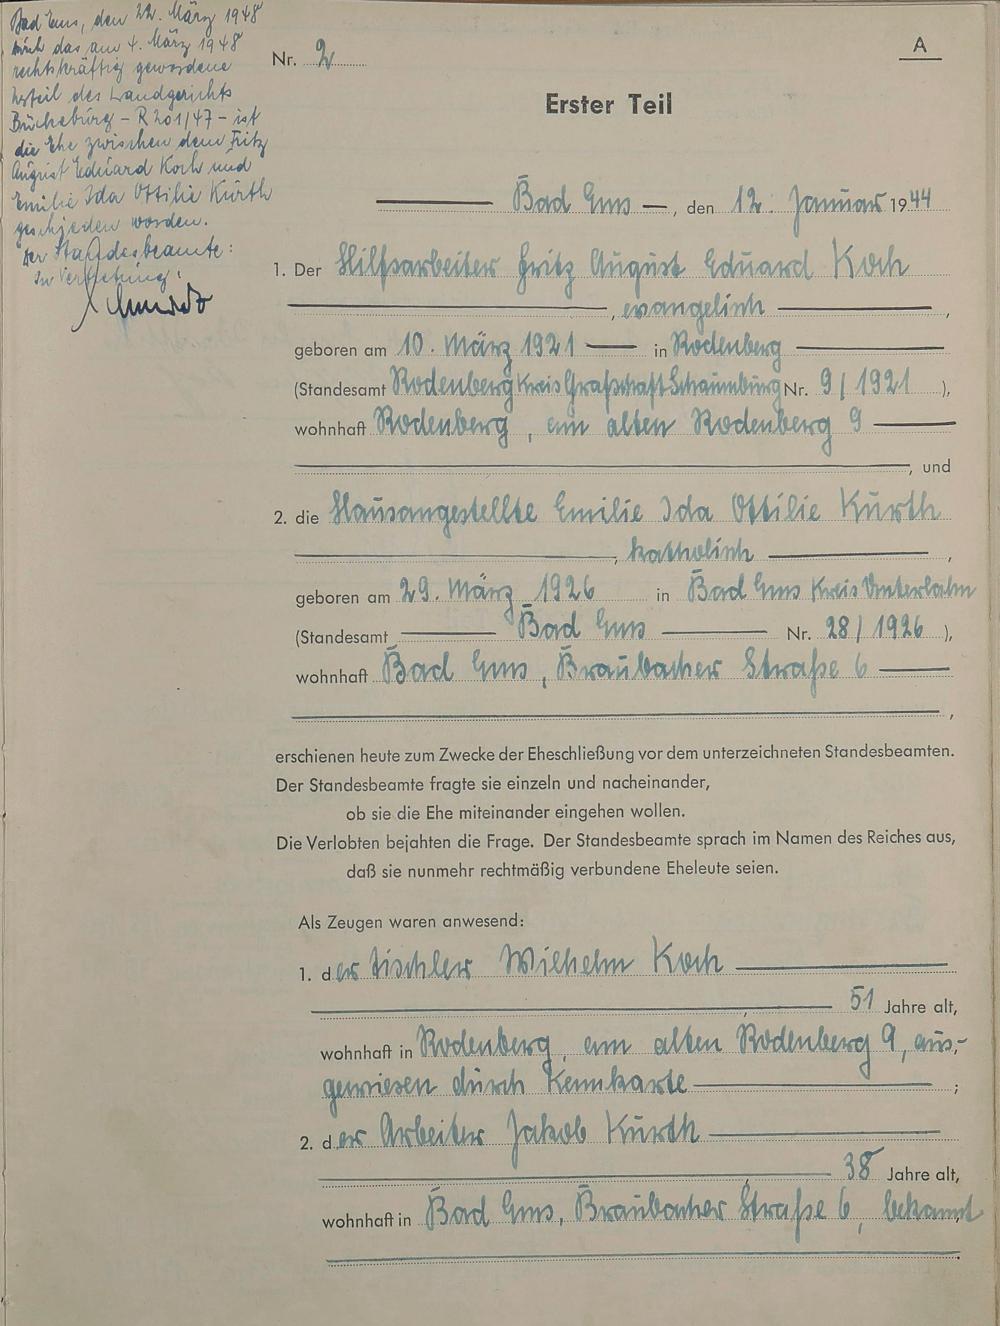 Bad Ems, den 22. März 1948
Durch das am 4. März 1948
rechtskräftig gewordene
Urteil des Landgerichts
Bückeburg - R 201/47 - ist
die Ehe zwischen dem Fritz
August Eduard Koch und
Emilie Ida Ottilie Kurth
geschieden worden.
Der Standesbeamte:
In Vertretung:
A
Nr. 2
Erster Teil
Bad Ems —, den 12. Januar 1944
1. Der Hilfsarbeiter Fritz August Eduard Koch
, evangelisch ,
geboren am 10. März 1921 — in Rodenberg
(Standesamt Rodenberg Kreis Grafschaft Schaumburg Nr. 9/1921 ),
wohnhaft Rodenberg, am alten Rodenberg 9
, und
2. die Hausangestellte Emilie Ida Ottilie Kurth
, katholisch ,
geboren am 29. März 1926 in Bad Ems Kreis Unterlahn
(Standesamt — Bad Ems — Nr. 28/1926 ),
wohnhaft Bad Ems, Braubacher Straße 6
,
erschienen heute zum Zwecke der Eheschließung vor dem unterzeichneten Standesbeamten.
Der Standesbeamte fragte sie einzeln und nacheinander,
ob sie die Ehe miteinander eingehen wollen.
Die Verlobten bejahten die Frage. Der Standesbeamte sprach im Namen des Reiches aus,
daß sie nunmehr rechtmäßig verbundene Eheleute seien.
Als Zeugen waren anwesend:
1. der Tischler Wilhelm Koch
51 Jahre alt,
wohnhaft in Rodenberg, am alten Rodenberg 9, aus-
gewiesen durch Kennkarte ;
2. der Arbeiter Jakob Kurth
38 Jahre alt,
wohnhaft in Bad Ems, Braubacher Straße 6, bekannt
.